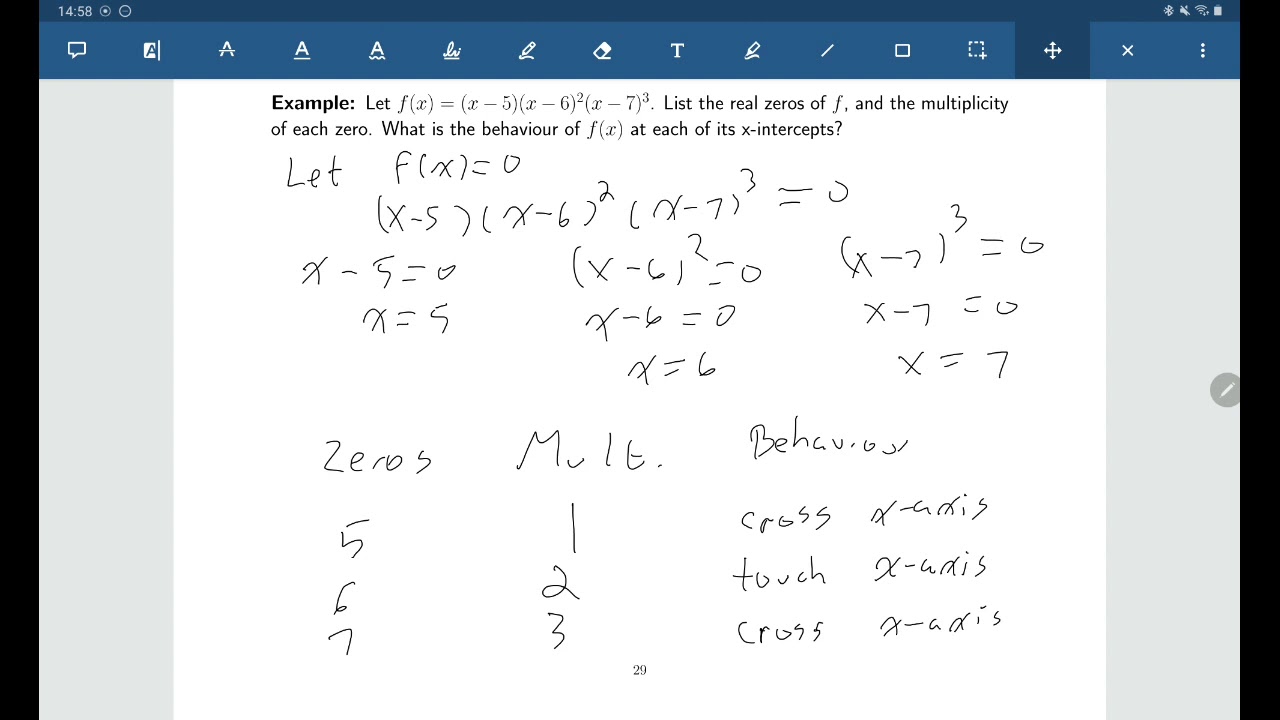 14:58
Example: Let f(x) = (x − 5)(x − 6)²(x − 7)³. List the real zeros of f, and the multiplicity
of each zero. What is the behaviour of f(x) at each of its x-intercepts?
Let f(x) = 0
(x − 5)(x − 6)²(x − 7)³ = 0
x − 5 = 0 (x − 6)² = 0 (x − 7)³ = 0
x = 5 x − 6 = 0 x − 7 = 0
x = 6 x = 7
Zeros Mult. Behaviour
5 1 cross x-axis
6 2 touch x-axis
7 3 cross x-axis
29